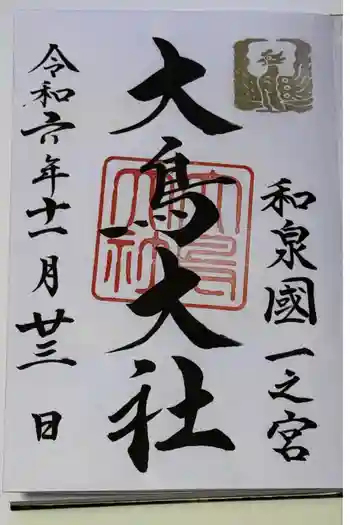 和泉國一之宮
大鳥大社
令和六年十一月廿三日